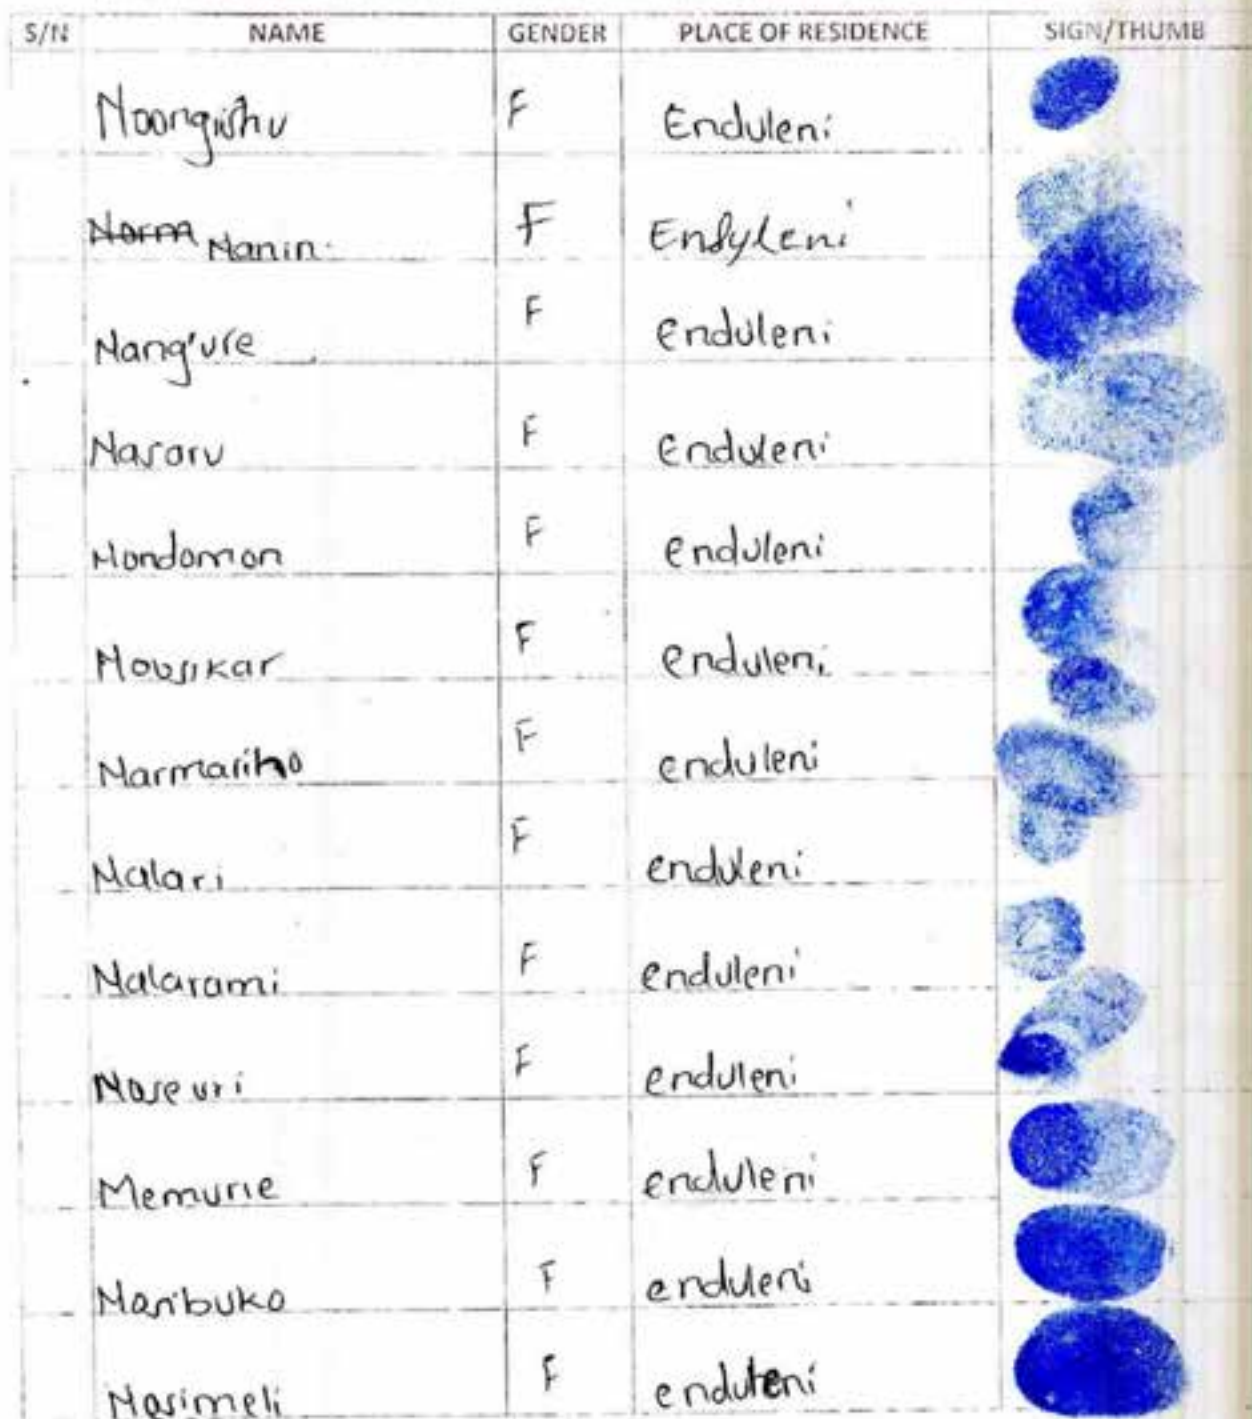 S/N NAME GENDER PLACE OF RESIDENCE SIGN/THUMB
Noongishu F Enduleni
Norm Nanin F Endyleni
Nang'ure F enduleni
Nasaru F enduleni
Nondomon F enduleni
Nousikar F enduleni
Narmariho F enduleni
Nalari F enduleni
Nalarami F enduleni
Naseuri F enduleni
Memurie F enduleni
Naribuko F enduleni
Nasimeli F enduleni